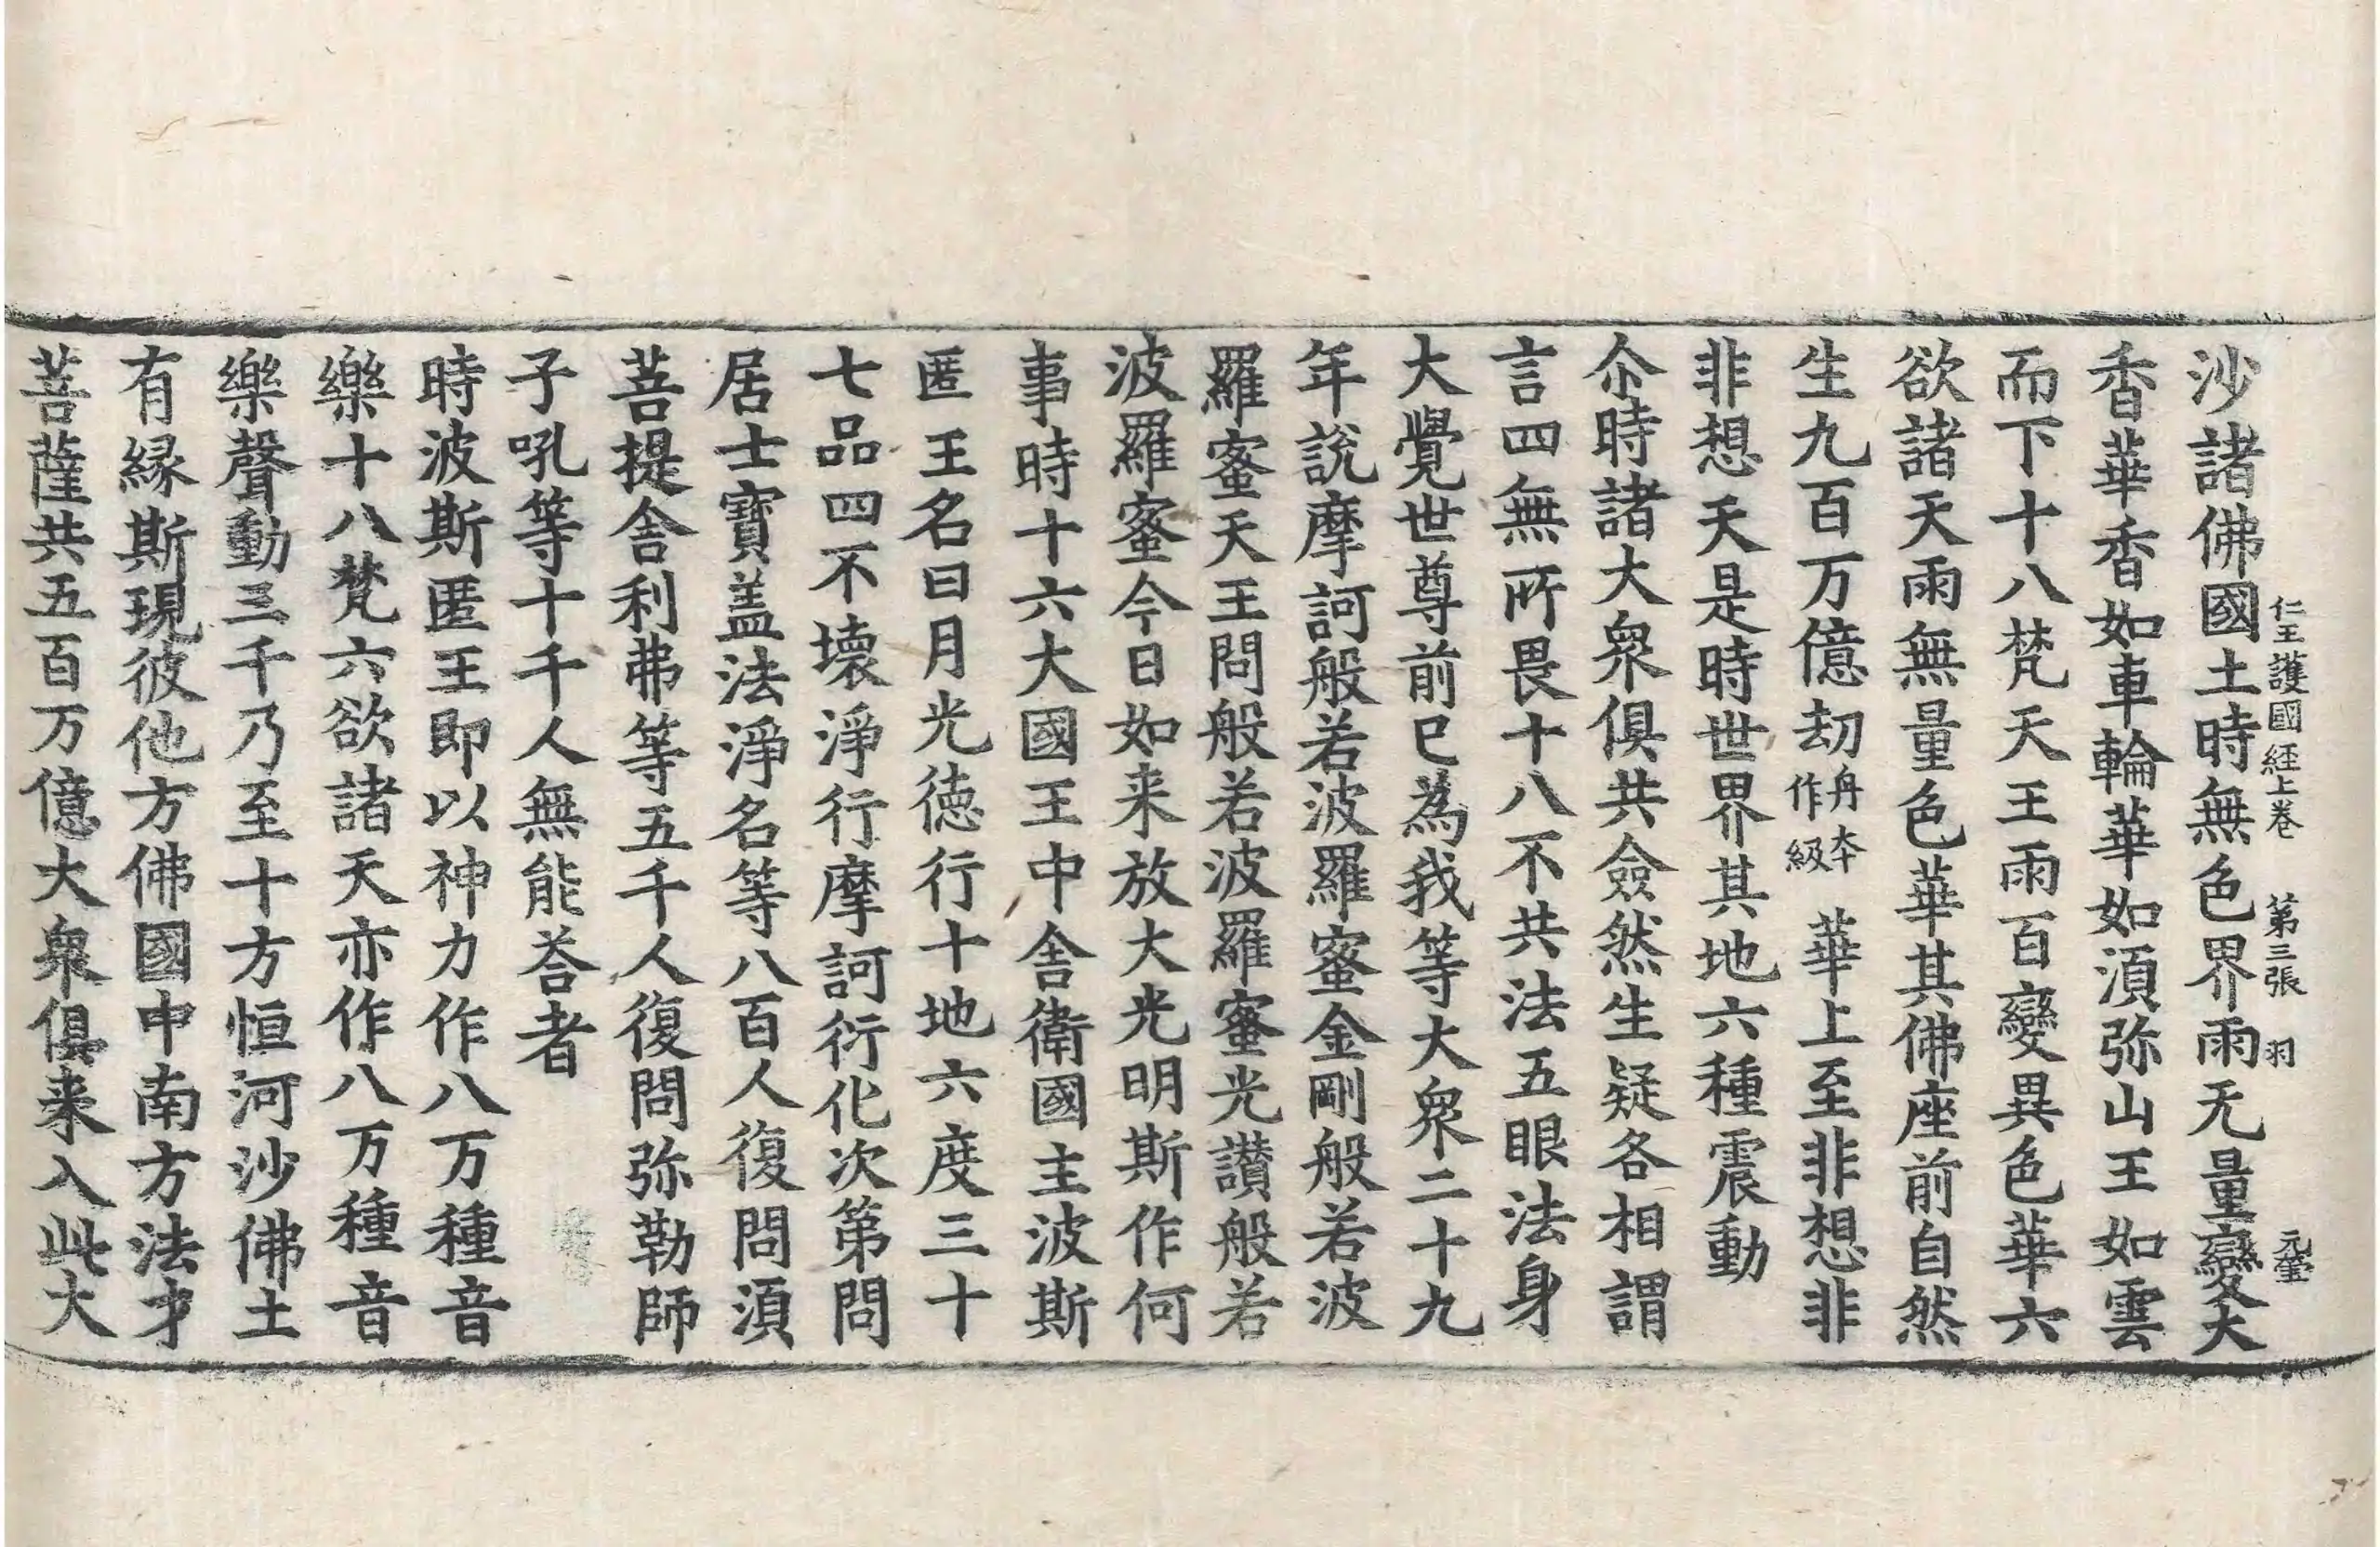 仁王護國経上卷 第三張 羽
沙諸佛國土時無色界雨无量變大
香華香如車輪華如湏弥山王如雲
而下十八梵天王雨百變異色華六
欲諸天雨無量色華其佛座前自然
生九百万億劫丹本作級華上至非想非
非想天是時世界其地六種震動
尒時諸大衆俱共僉然生疑各相謂
言四無所畏十八不共法五眼法身
大覺世尊前已為我等大衆二十九
年說摩訶般若波羅蜜金剛般若波
羅蜜天王問般若波羅蜜光讃般若
波羅蜜今日如来放大光明斯作何
事時十六大國王中舍衛國主波斯
匿王名曰月光徳行十地六度三十
七品四不壞淨行摩訶衍化次第問
居士寶盖法淨名等八百人復問湏
菩提舍利弗等五千人復問弥勒師
子吼等十千人無能荅者
時波斯匿王即以神力作八万種音
樂十八梵六欲諸天亦作八万種音
樂聲動三千乃至十方恒河沙佛土
有縁斯現彼他方佛國中南方法才
菩薩共五百万億大衆俱来入此大